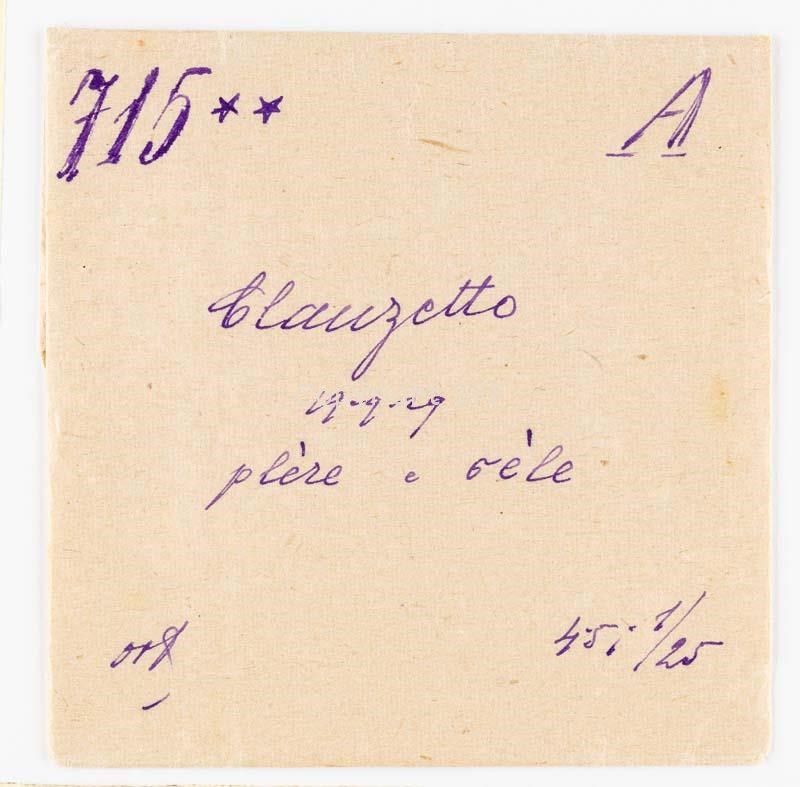 715** A
Clauzetto
19-9-29
plère e sèle
ort
4.5; 1/25